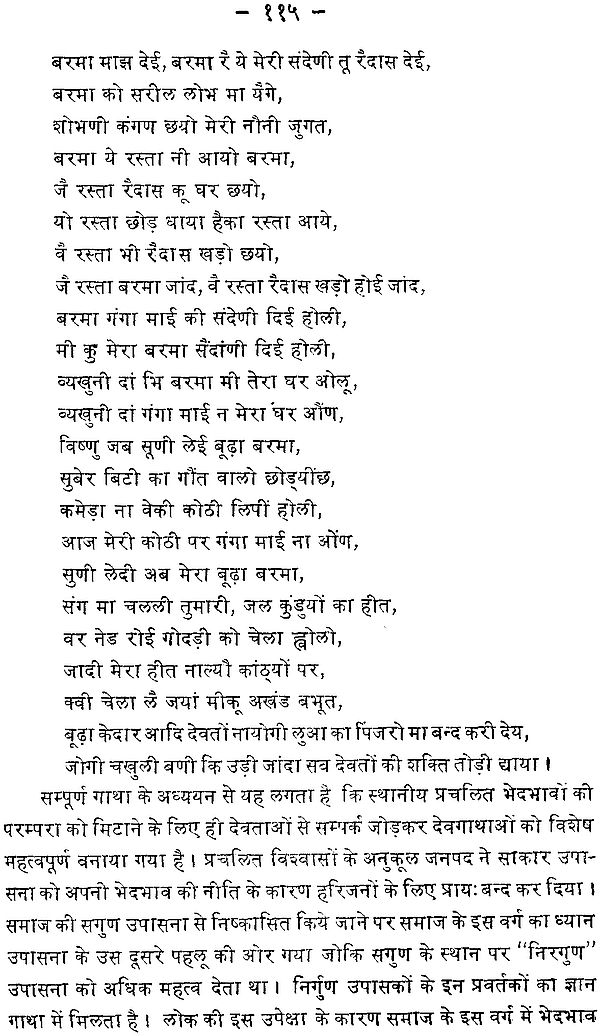 - ११५ -
बरमा माझ देई, बरमा रै ये मेरी संदेणी तू रैदास देई,
बरमा को सरील लोभ मा यैगे,
शोभणी कंगण छयो मेरी नौनी जुगत,
बरमा ये रस्ता नी आयो बरमा,
जै रस्ता रैदास कू घर छयो,
यो रस्ता छोड़ धाया हैका रस्ता आये,
वै रस्ता भी रैदास खड़ो छयो,
जै रस्ता बरमा जांद, वै रस्ता रैदास खड़ो होई जांद,
बरमा गंगा माई की संदेणी दिई होली,
मी कु मेरा बरमा सैंदांणी दिई होली,
व्यखुनी दां भि बरमा मी तेरा घर ओलू,
व्यखुनी दां गंगा माई न मेरा घर औंण,
विष्णु जब सूणी लेई बूढ़ा बरमा,
सुबेर बिटी का गौंत वालो छोड़्यींछ,
कमेड़ा ना वेकी कोठी लिपीं होली,
आज मेरी कोठी पर गंगा माई ना ओंण,
सुणी लेदी अब मेरा बूढ़ा बरमा,
संग मा चलली तुमारी, जल कुंडुयों का हीत,
वर नेड रोई गोदड़ी को चेला ह्वोलो,
जादी मेरा हीत नाल्यौ कांठ्यों पर,
क्वी चेला लै जयां मीकू अखंड बभूत,
बूढ़ा केदार आदि देवतों नायोगी लुआ का पिंजरो मा बन्द करी देय,
जोगी चखुली बणी कि उड़ी जांदा सब देवतों की शक्ति तोड़ी द्याया।
सम्पूर्ण गाथा के अध्ययन से यह लगता है कि स्थानीय प्रचलित भेदभावों की
परम्परा को मिटाने के लिए ही देवताओं से सम्पर्क जोड़कर देवगाथाओं को विशेष
महत्वपूर्ण बनाया गया है। प्रचलित विश्वासों के अनुकूल जनपद ने साकार उपा-
सना को अपनी भेदभाव की नीति के कारण हरिजनों के लिए प्रायः बन्द कर दिया।
समाज की सगुण उपासना से निष्कासित किये जाने पर समाज के इस वर्ग का ध्यान
उपासना के उस दूसरे पहलू की ओर गया जोकि सगुण के स्थान पर "निरगुण"
उपासना को अधिक महत्व देता था। निर्गुण उपासकों के इन प्रवर्तकों का ज्ञान
गाथा में मिलता है। लोक की इस उपेक्षा के कारण समाज के इस वर्ग में भेदभाव